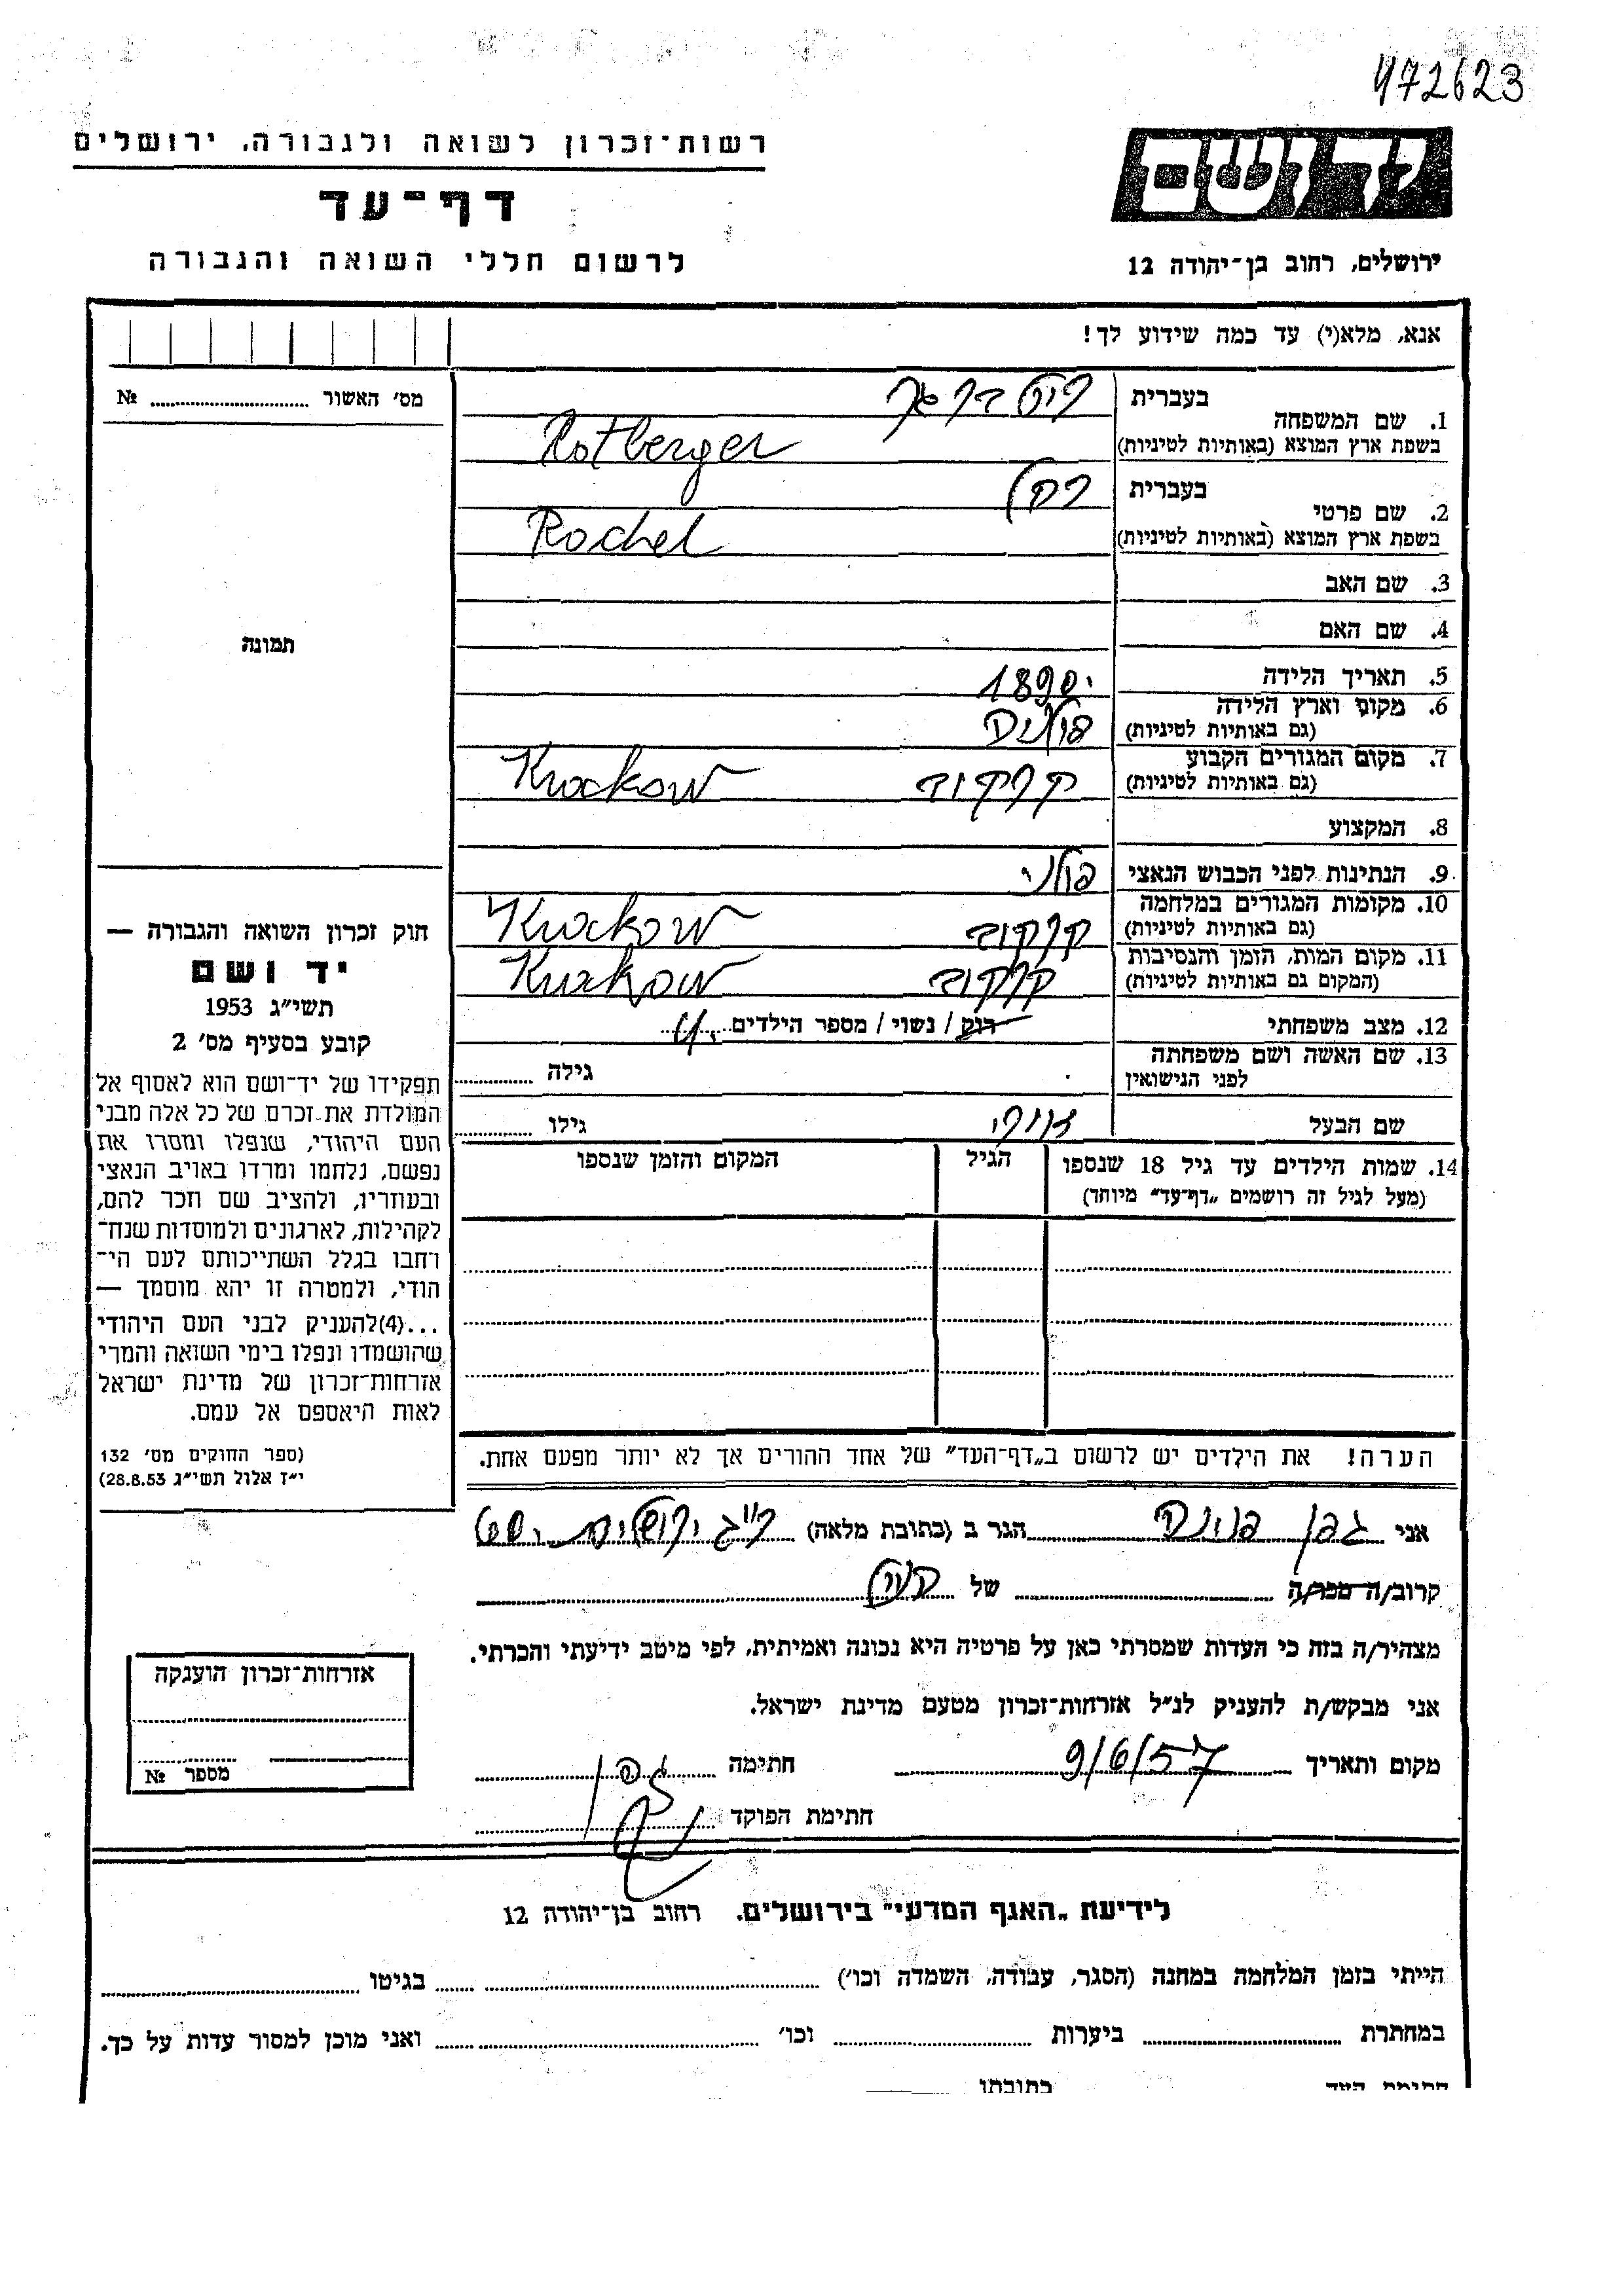 472623
רשות־זכרון לשואה ולגבורה, ירושלים
יד ושם
דף־עד
לרשום חללי השואה והגבורה
ירושלים, רחוב בן־יהודה 12
אנא, מלא(י) עד כמה שידוע לך!
מס׳ האשור № 
1. שם המשפחה
בעברית
בשפת ארץ המוצא (באותיות לטיניות) Rotberger
2. שם פרטי
בעברית רחל
בשפת ארץ המוצא (באותיות לטיניות) Rochel
3. שם האב
4. שם האם
תמונה
5. תאריך הלידה 1890
6. מקום וארץ הלידה
(גם באותיות לטיניות) פולניה
7. מקום המגורים הקבוע
(גם באותיות לטיניות) קרקוב Krakow
8. המקצוע
9. הנתינות לפני הכבוש הנאצי פולני
10. מקומות המגורים במלחמה
(גם באותיות לטיניות) קרקוב Krakow
11. מקום המות, הזמן והנסיבות
(המקום גם באותיות לטיניות) קרקוב Krakow
12. מצב משפחתי רוק / נשוי / מספר הילדים
13. שם האשה ושם משפחתה
לפני הנישואין גילה
שם הבעל גילו
14. שמות הילדים עד גיל 18 שנספו הגיל המקום והזמן שנספו
(מעל לגיל זה רושמים „דף־עד״ מיוחד)
חוק זכרון השואה והגבורה —
יד ושם
תשי״ג 1953
קובע בסעיף מס׳ 2
תפקידו של יד־ושם הוא לאסוף אל
המולדת את זכרם של כל אלה מבני
העם היהודי, שנפלו ומסרו את
נפשם, נלחמו ומרדו באויב הנאצי
ובעוזריו, ולהציב שם וזכר להם,
לקהילות, לארגונים ולמוסדות שנח־
רחבו בגלל השתייכותם לעם הי־
הודי, ולמטרה זו יהא מוסמך —
...(4)להעניק לבני העם היהודי
שהושמדו ונפלו בימי השואה והמרי
אזרחות־זכרון של מדינת ישראל
לאות היאספם אל עמם.
(ספר החוקים מס׳ 132
י״ז אלול תשי״ג 28.8.53)
הערה! את הילדים יש לרשום ב„דף־העד״ של אחד ההורים אך לא יותר מפעם אחת.
אני גפן הגר ב (כתובת מלאה)
קרוב/ה מכר/ה של
מצהיר/ה בזה כי העדות שמסרתי כאן על פרטיה היא נכונה ואמיתית, לפי מיטב ידיעתי והכרתי.
אני מבקש/ת להעניק לנ״ל אזרחות־זכרון מטעם מדינת ישראל.
מקום ותאריך 9/6/57 חתימה גפן
חתימת הפוקד
אזרחות־זכרון הוענקה
מספר №
לידיעת „האגף המדעי״ בירושלים, רחוב בן־יהודה 12
הייתי בזמן המלחמה במחנה (הסגר, עבודה, השמדה וכו׳) בגיטו
במחתרת ביערות וכו׳ ואני מוכן למסור עדות על כך.
חתימת העד כתובתו